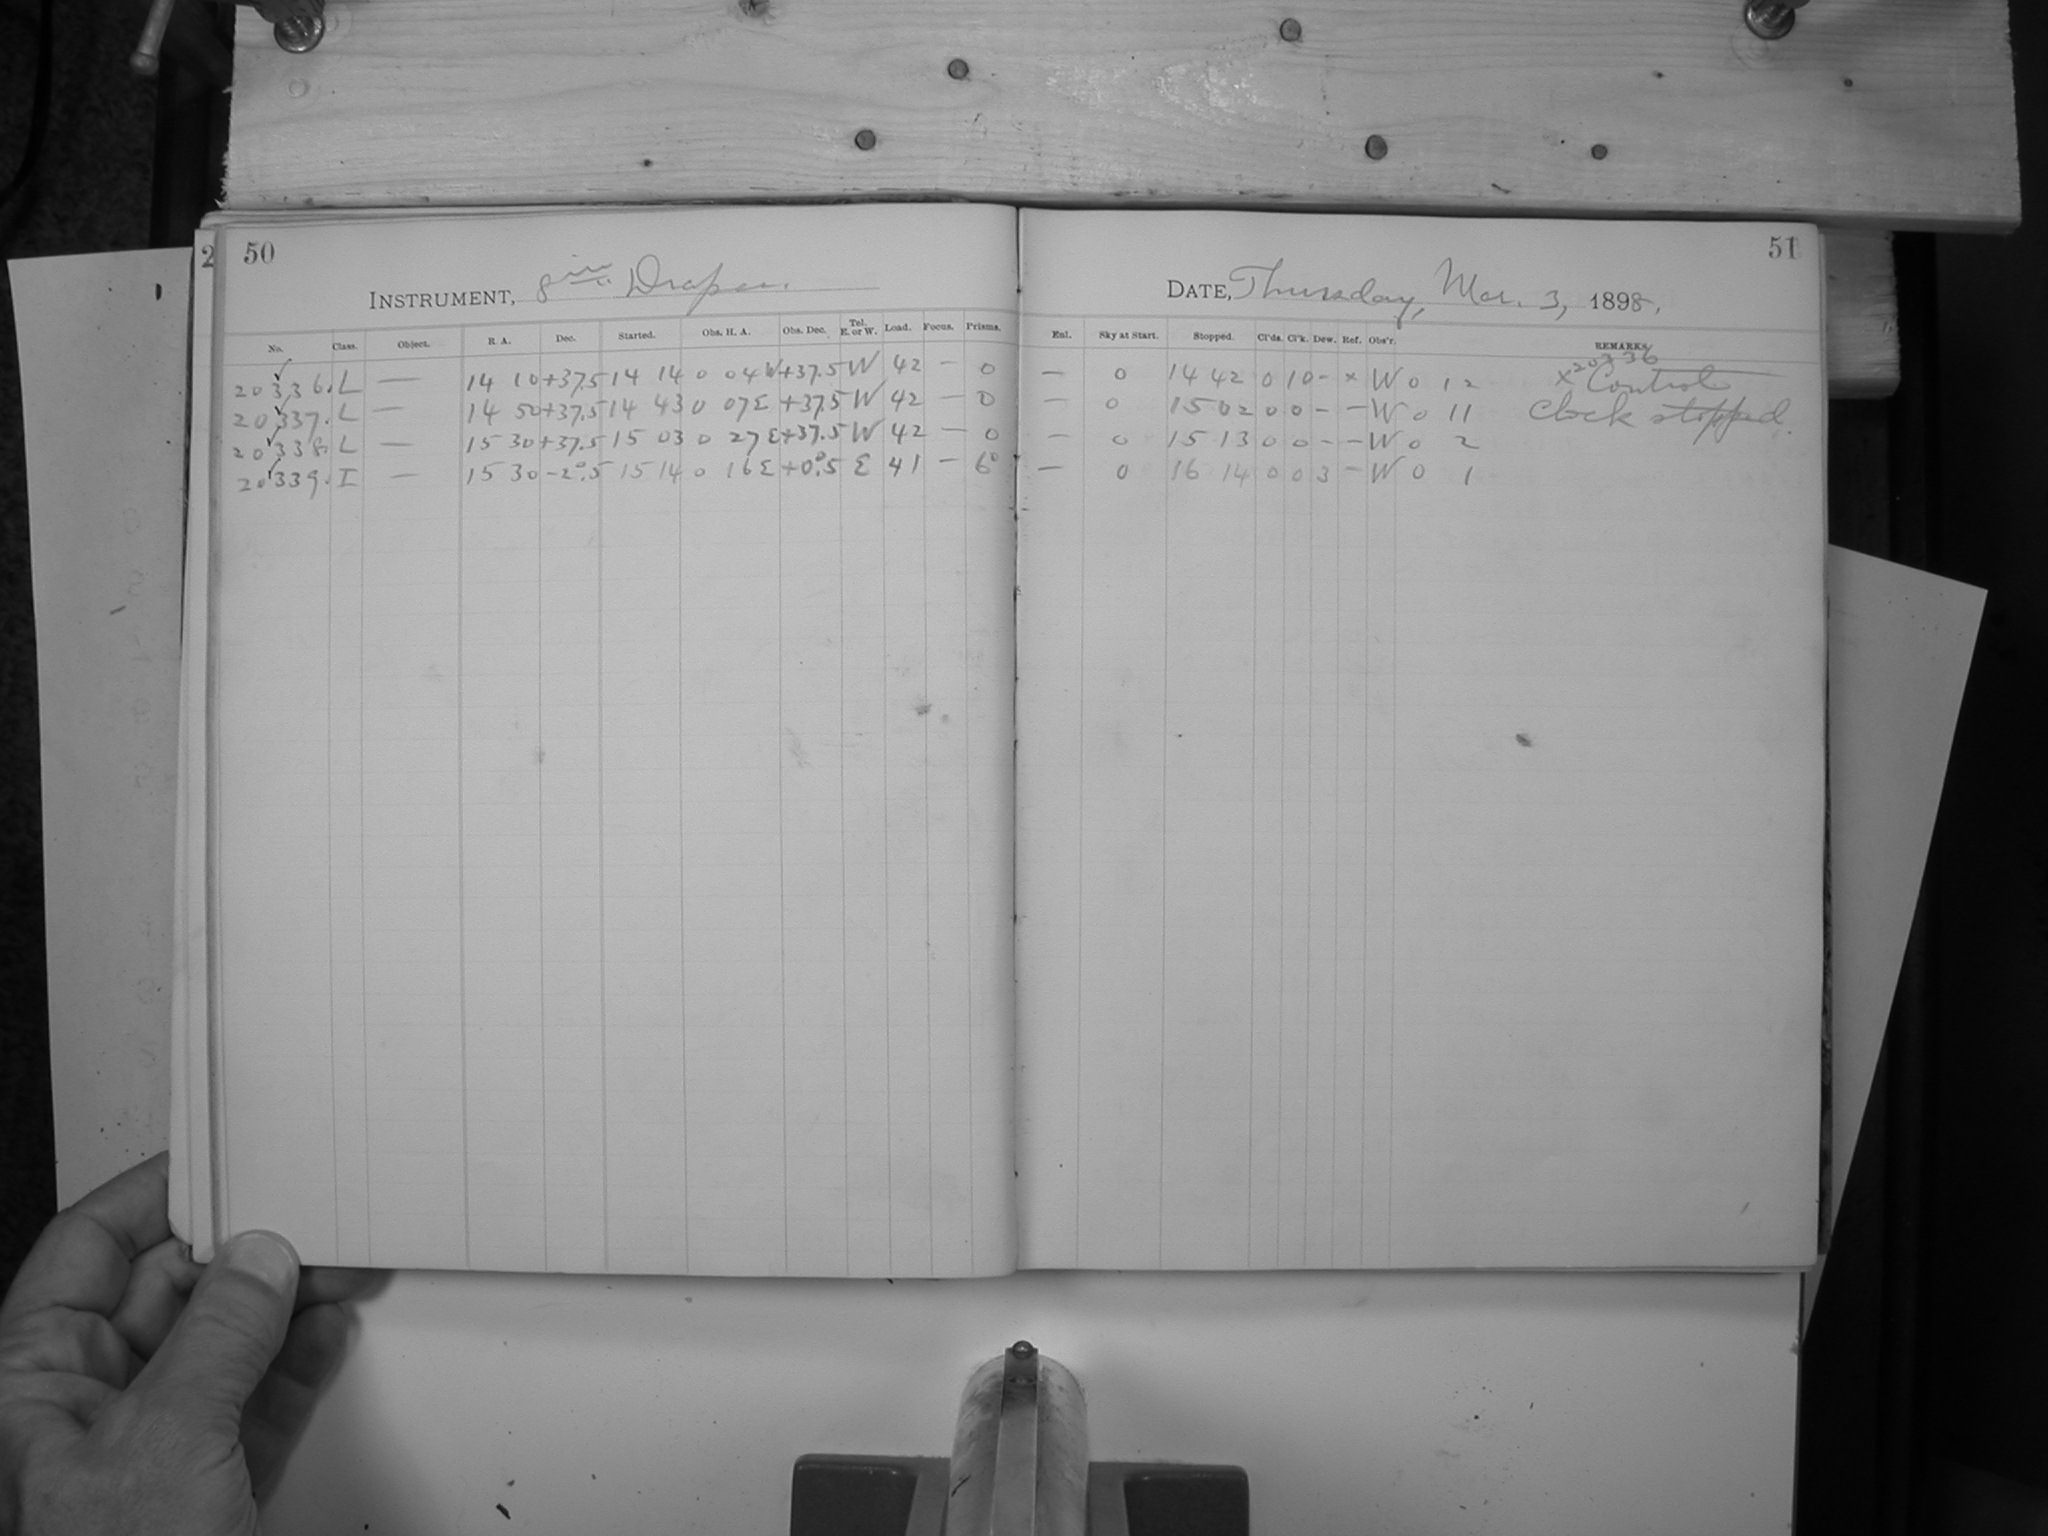 2 50
51
INSTRUMENT, 8 in. Draper.
DATE, Thursday, Mar. 3, 1898,
No. Class. Object. R. A. Dec. Started. Obs. H. A. Obs. Dec. Tel. E. or W. Load. Focus. Prisms. Enl. Sky at Start. Stopped. Cl'ds. Cl'k. Dew. Ref. Obs'r. REMARKS
20336. L — 14 10 +37.5 14 14 0 04 W +37.5 W 42 — 0 — 0 14 42 0 10 - x W 0 12 x 20336 Control
20337. L — 14 50 +37.5 14 43 0 07 E +37.5 W 42 — 0 — 0 15 02 0 0 - - W 0 11 clock stopped.
20338. L — 15 30 +37.5 15 03 0 27 E +37.5 W 42 — 0 — 0 15 13 0 0 - - W 0 2
20339. I — 15 30 -2°.5 15 14 0 16 E +0°.5 E 41 — 6° — 0 16 14 0 0 3 - W 0 1